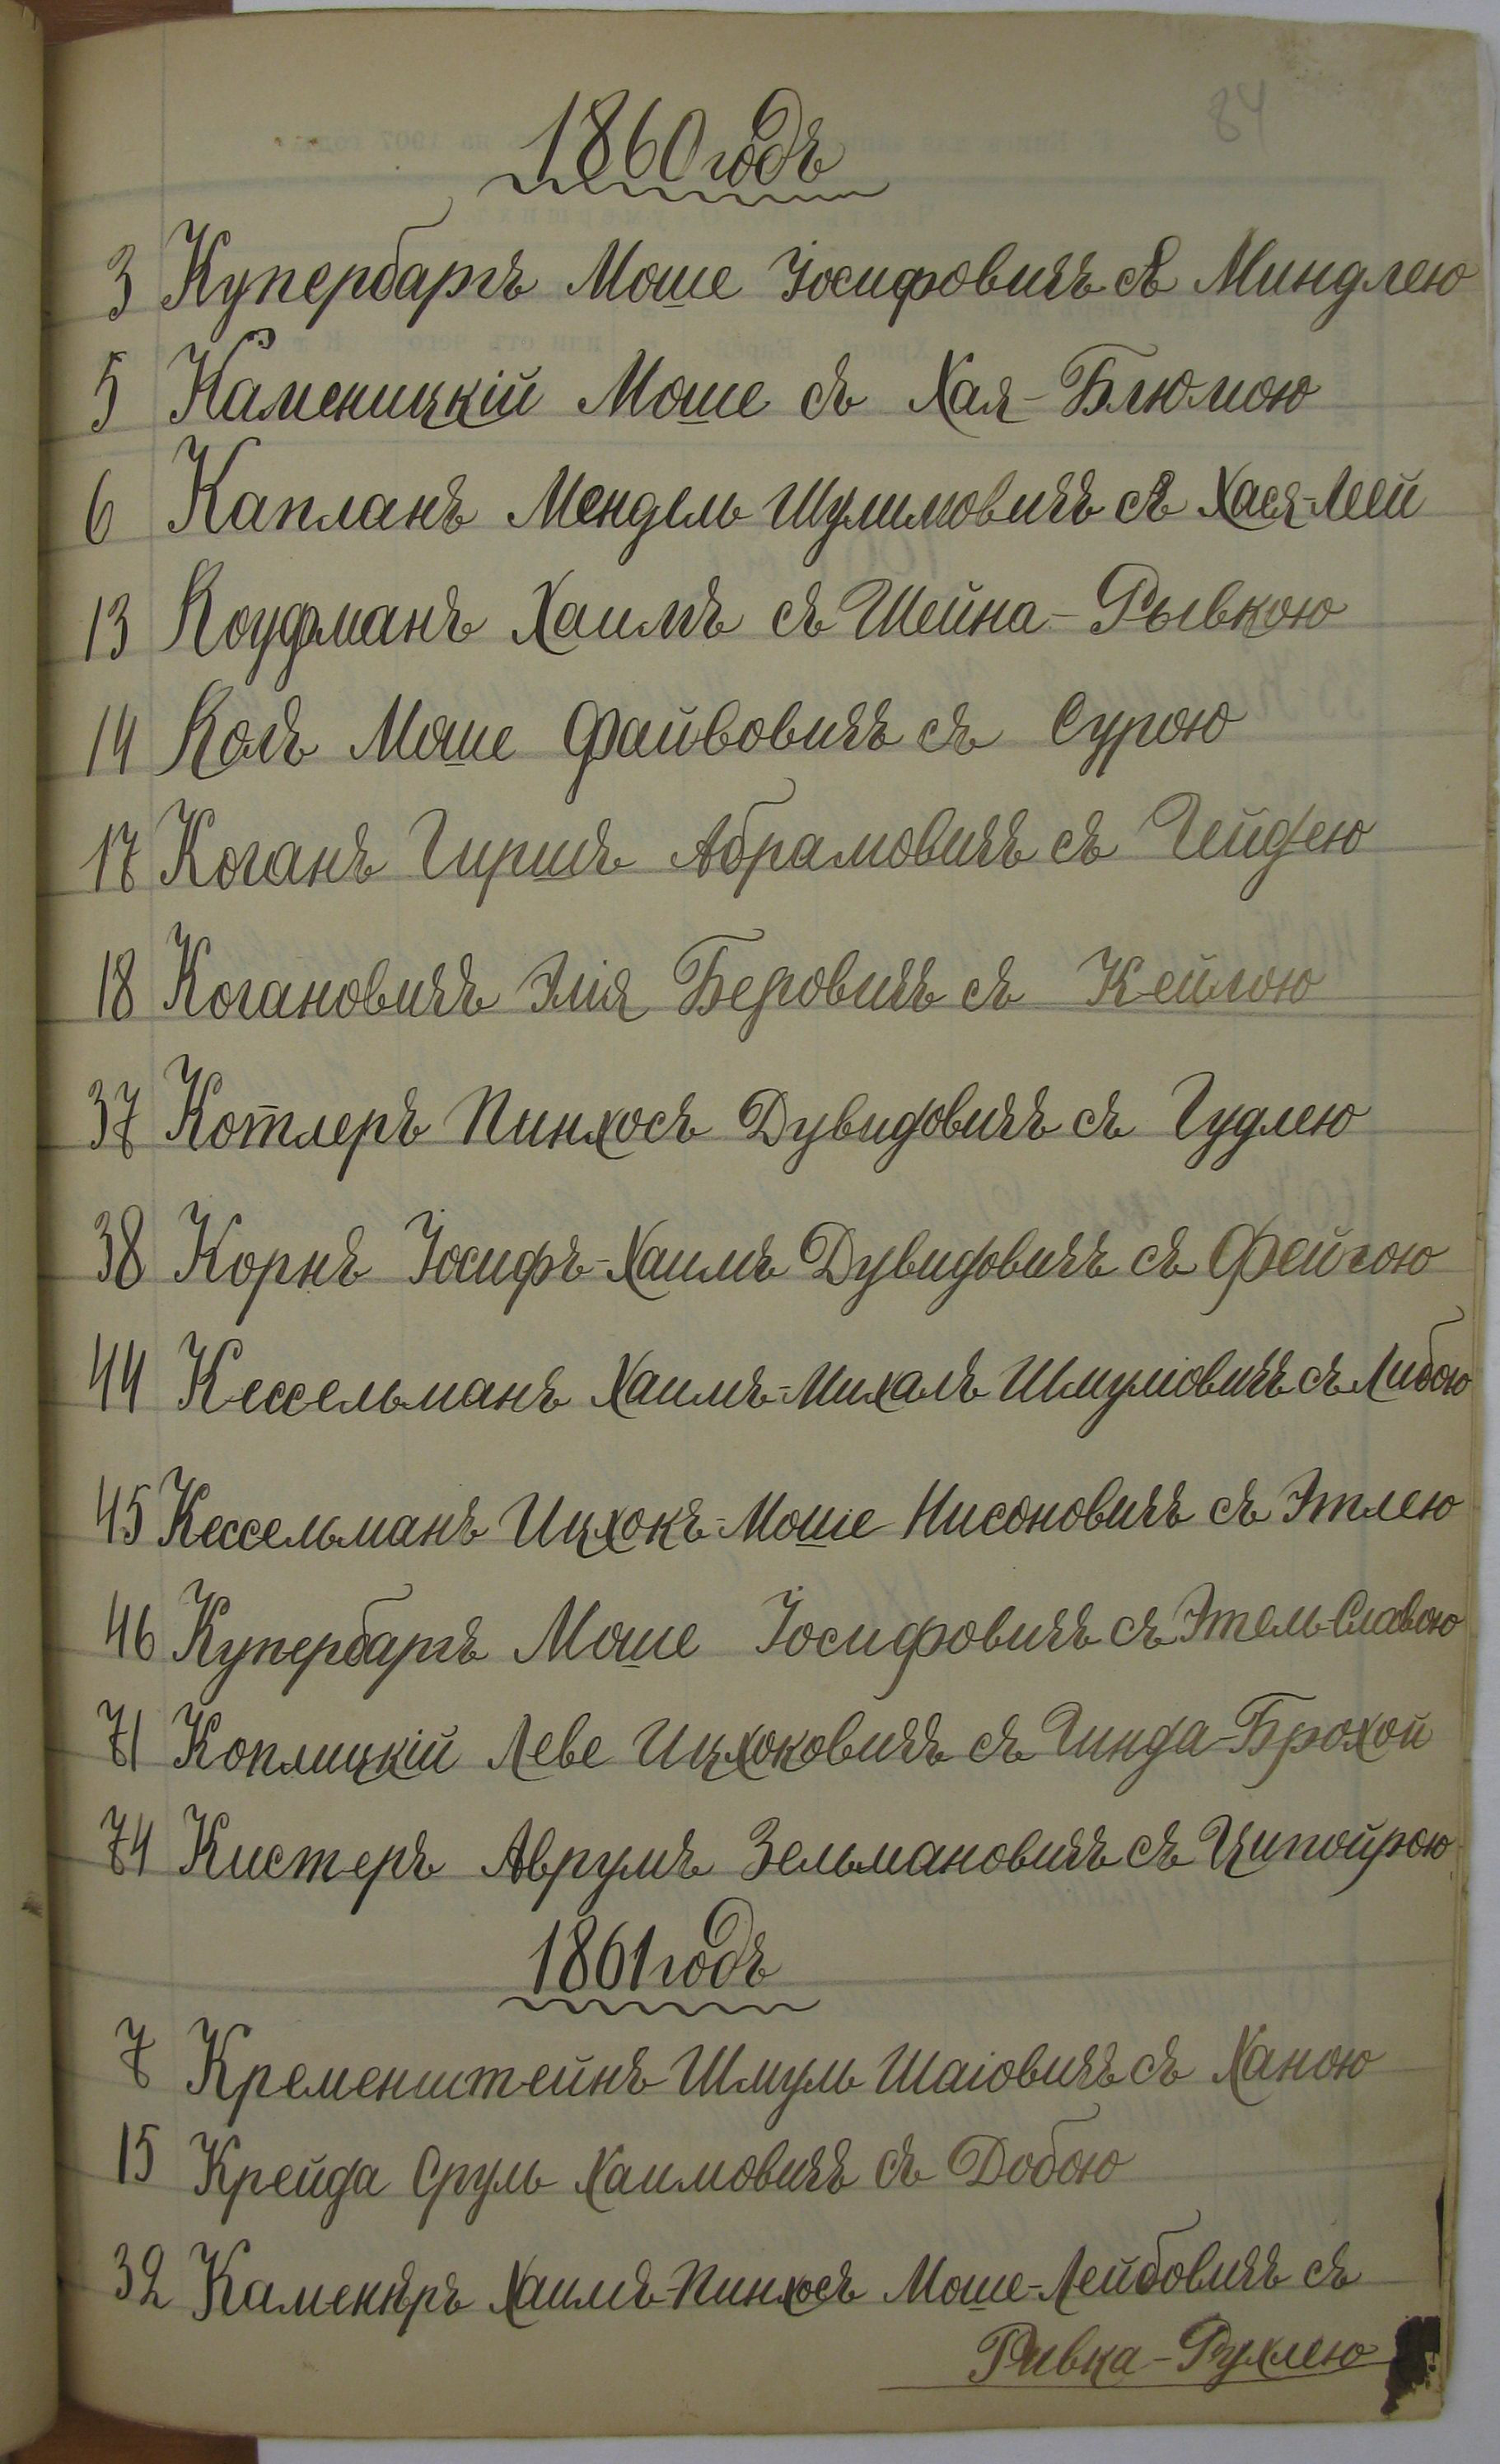 84
1860 годъ
3 Купербартъ Моше Іосифовичъ съ Миндлею
5 Каменицкій Моше съ Хая-Блюмою
6 Капланъ Мендель Шулимовичъ съ Хася-Леей
13 Коуфманъ Хаимъ съ Шейна-Рывкою
14 Колъ Моше Файвовичъ съ Сурою
17 Коганъ Гиршъ Абрамовичъ съ Гейдею
18 Когановичъ Элія Беровичъ съ Кейлою
37 Котлеръ Пинхосъ Дувидовичъ съ Гудлею
38 Корнъ Іосифъ-Хаимъ Дувидовичъ съ Фейгою
44 Кессельманъ Хаимъ-Михалъ Шмуліовичъ съ Либою
45 Кессельманъ Ицхокъ-Моше Нисоновичъ съ Этлею
46 Купербартъ Моше Іосифовичъ съ Этель-Славою
71 Коплицкій Леве Ицхоковичъ съ Гинда-Брохой
74 Кистеръ Аврумъ Зельмановичъ съ Ципойрою
1861 годъ
7 Кременштейнъ Шмуль Шаіовичъ съ Ханою
15 Крейда Сруль Хаимовичъ съ Добою
32 Каменѣръ Хаимъ-Пинхосъ Моше-Лейбовичъ съ
Ривка-Рухлею